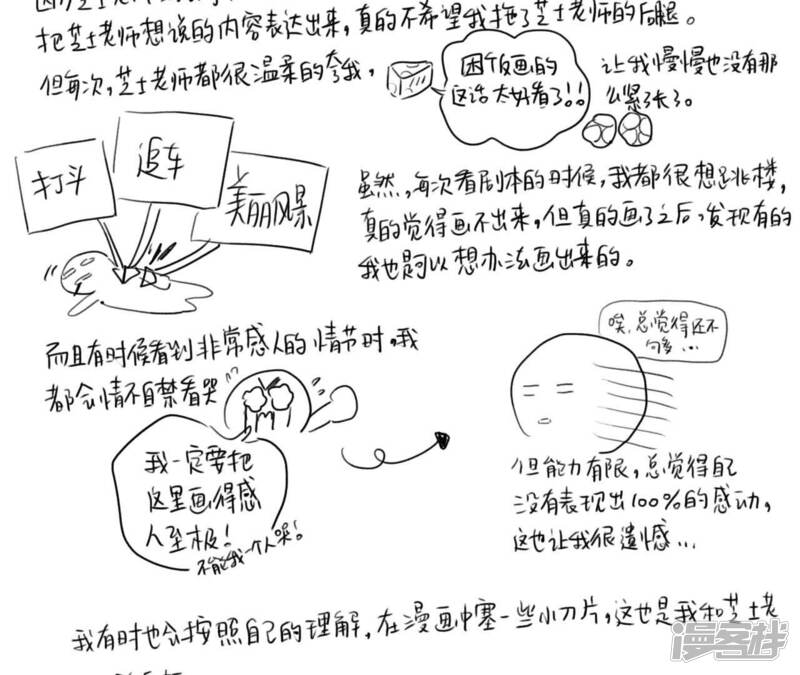 把芝士老师想说的内容表达出来，真的不希望我拖了芝士老师的后腿。
但每次，芝士老师都很温柔的夸我，
困饭画的
这话太好看了!!
让我慢慢也没有那
么紧张了。
打斗
追车
美丽风景
虽然，每次看剧本的时候，我都很想跳楼，
真的觉得画不出来，但真的画了之后，发现有的
我也是可以想办法画出来的。
而且有时候看到非常感人的情节时，我
都会情不自禁看哭
我一定要把
这里画得感
人至极！
不能我一个人哭！
唉，总觉得还不
够...
但能力有限，总觉得自己
没有表现出100%的感动，
这也让我很遗憾...
我有时也会按照自己的理解，在漫画中塞一些小刀片，这也是我和芝士老
漫客栈